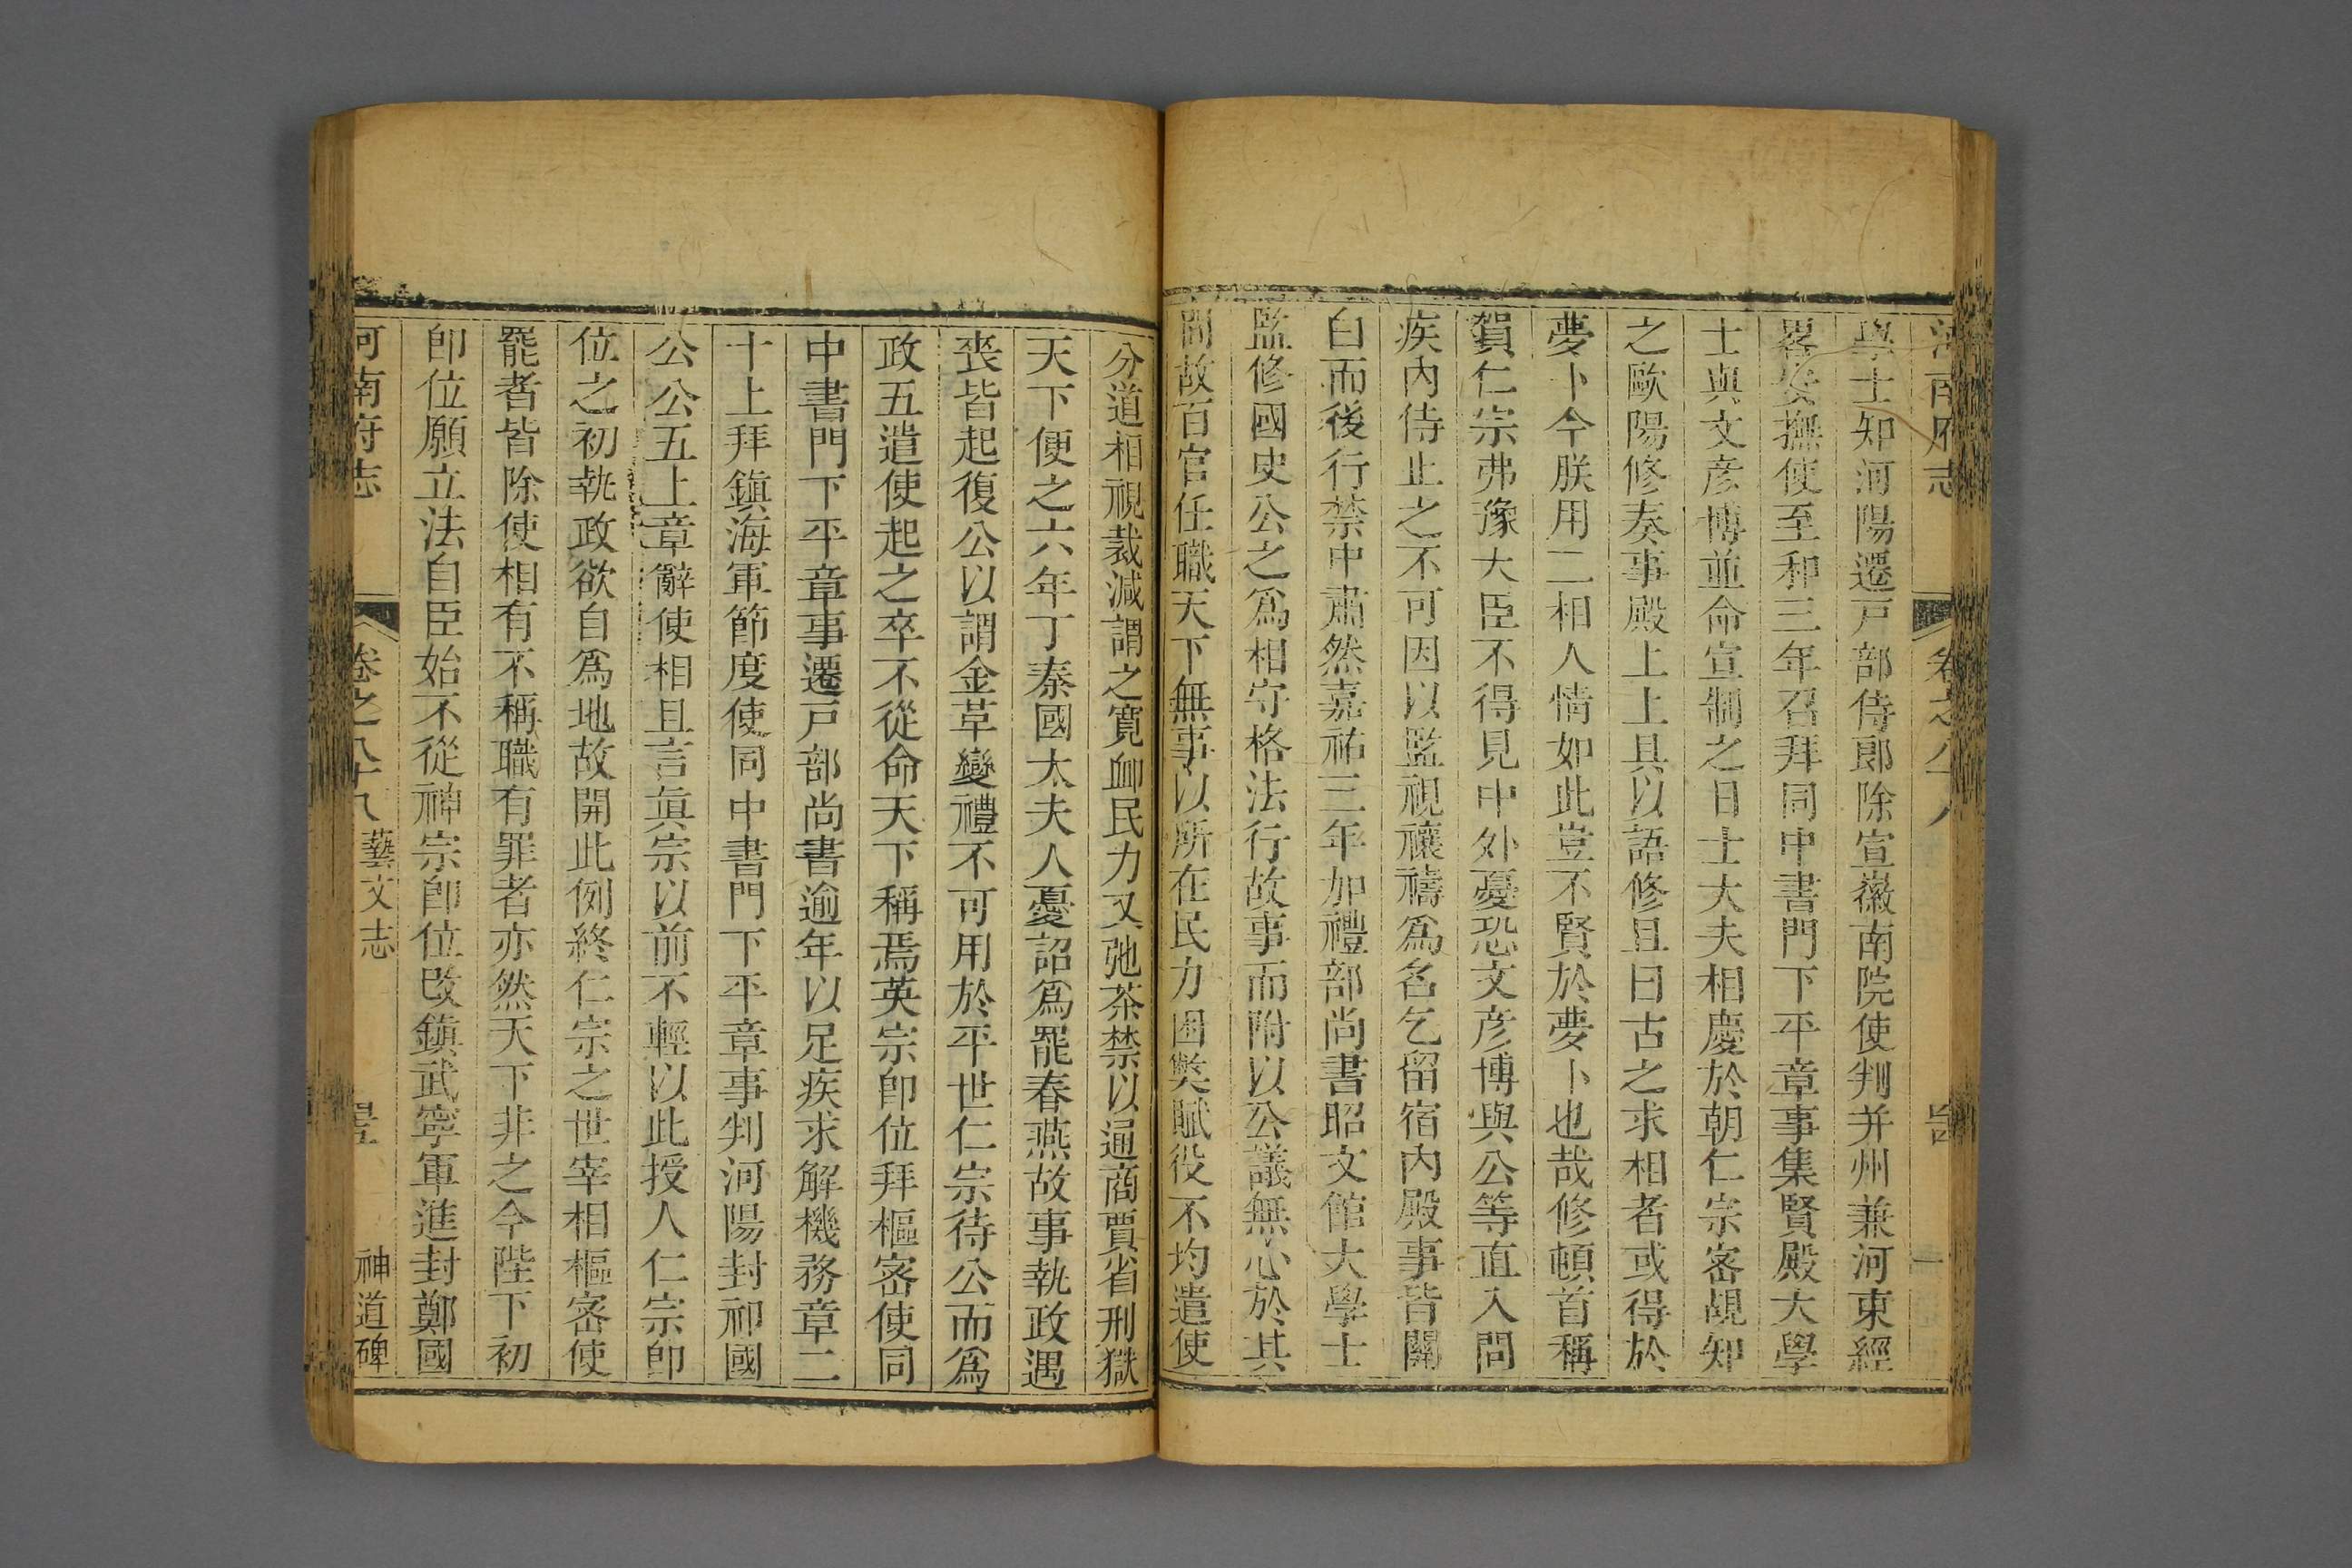 河南府志 卷之八十八
學士知河陽遷戸部侍郎除宣徽南院使判并州兼河東經
畧安撫使至和三年召拜同中書門下平章事集賢殿大學
士與文彦博並命宣制之日士大夫相慶於朝仁宗密覘知
之歐陽修奏事殿上上具以語修且曰古之求相者或得於
夢卜今朕用二相人情如此豈不賢於夢卜也哉修頓首稱
賀仁宗弗豫大臣不得見中外憂恐文彦博與公等直入問
疾內侍止之不可因以監視禳禱爲名乞留宿內殿事皆關
白而後行禁中肅然嘉祐三年加禮部尚書昭文館大學士
監修國史公之爲相守格法行故事而附以公議無心於其
間故百官任職天下無事以所在民力困獘賦役不均遣使
分道相視裁減謂之寬䘏民力又弛茶禁以通商賈省刑獄
天下便之六年丁秦國太夫人憂詔爲罷春燕故事執政遇
喪皆起復公以謂金革變禮不可用於平世仁宗待公而爲
政五遣使起之卒不從命天下稱焉英宗卽位拜樞密使同
中書門下平章事遷戸部尚書逾年以足疾求解機務章二
十上拜鎭海軍節度使同中書門下平章事判河陽封祁國
公公五上章辭使相且言眞宗以前不輕以此授人仁宗卽
位之初執政欲自爲地故開此例終仁宗之世宰相樞密使
罷者皆除使相有不稱職有罪者亦然天下非之今陛下初
卽位願立法自臣始不從神宗卽位改鎭武寧軍進封鄭國
河南府志 卷之八十八 藝文志 神道碑